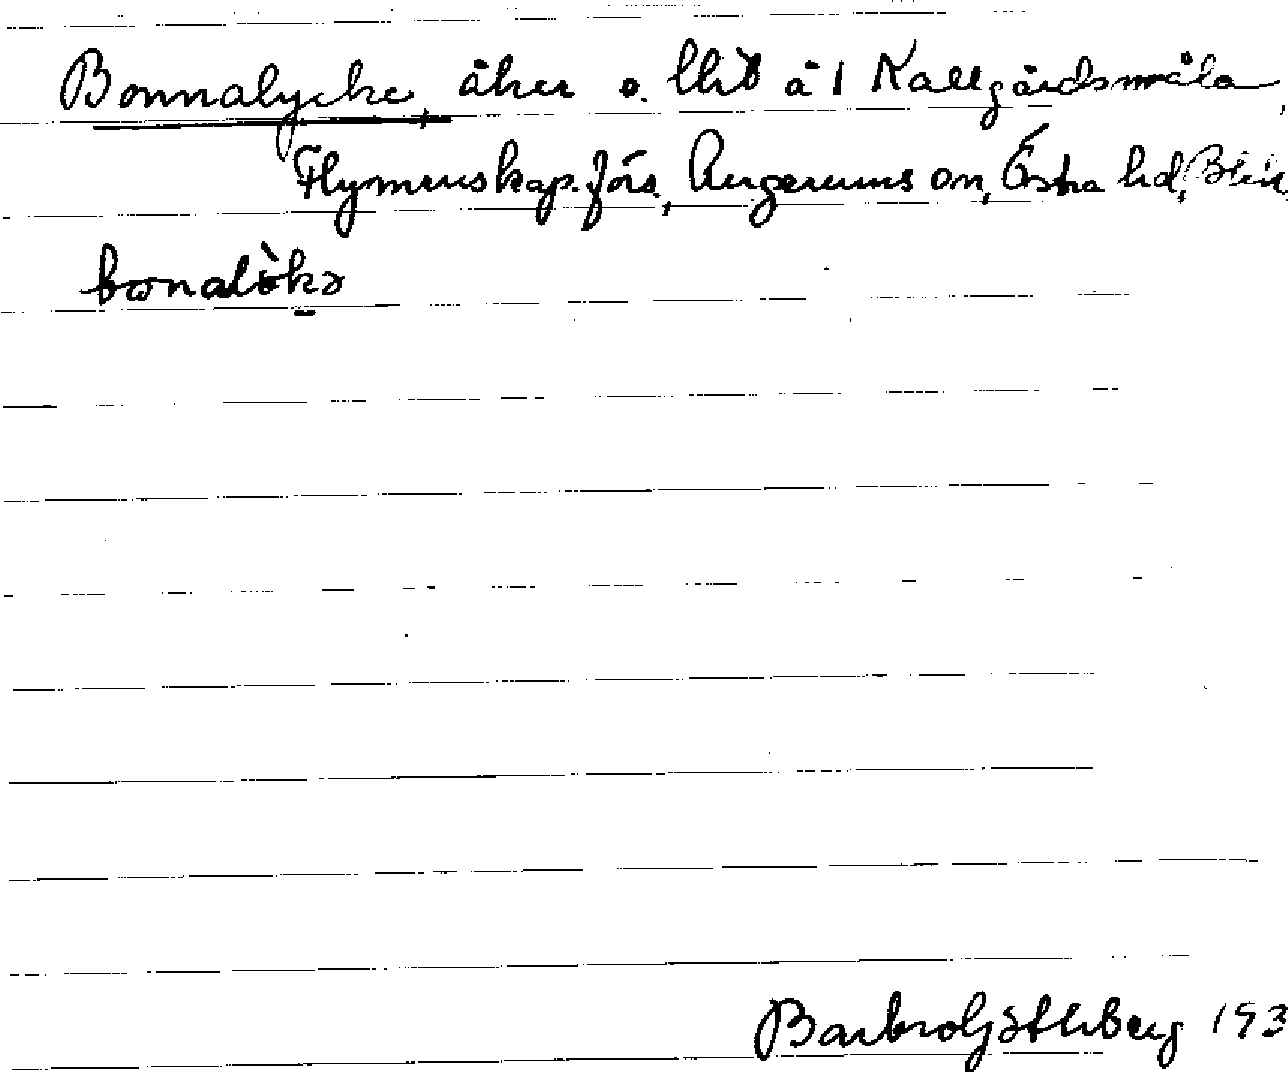 Bonnalycke, åker o. lhd å 1 Kallgårdsmåla,
Flymens kap. förs., Augerums sn, Östra hd, Blek
bonalöka
Barbro Göthberg 193